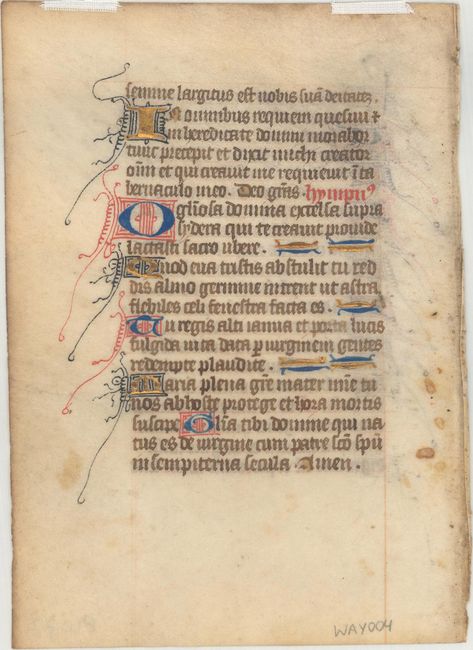 semine largitus est nobis suā deitatez.
In omnibus requiem quesiui ⁊
in hereditate domini morabor
tunc precepit et dixit michi creator
oīm et qui creauit me requieuit ī ta
bernaculo meo. Deo grās hympnꝰ
O gliosa domina excelsa supra
sydera qui te creauit prouide
lactasti sacro ubere.
Quod eua tristis abstulit tu red
dis almo germine intrent ut astra
flebiles celi fenestra facta es.
Tu regis alti ianua et porta lucis
fulgida uitā datā ꝑ uirginem gentes
redempte plaudite.
Maria plena grē mater mīe tu
nos ab hoste protege et hora mortis
suscipe Glīa tibi domine qui na
tus es de uirgine cum patre scō spū
in sempiterna secula. Amen.
WAY004